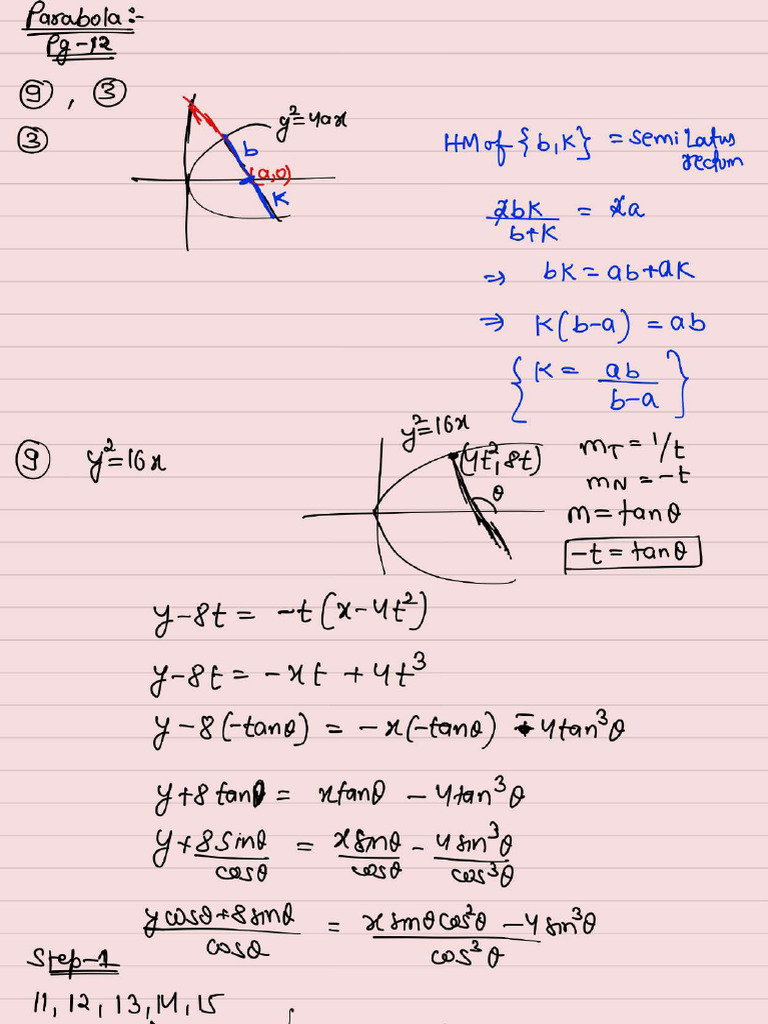 Parabola:-
Pg-12
⑨, ③
③
y²=4ax
b
(a,0)
K
HM of {b,K} = semi Latus rectum
2bK/(b+K) = 2a
⇒ bK = ab+aK
⇒ K(b-a) = ab
{K = ab/(b-a)}
⑨ y²=16x
y²=16x
(4t², 8t)
θ
m_T = 1/t
m_N = -t
m = tanθ
-t = tanθ
y-8t = -t(x-4t²)
y-8t = -xt + 4t³
y-8(-tanθ) = -x(-tanθ) - 4tan³θ
y+8tanθ = xtanθ - 4tan³θ
y+8sinθ/cosθ = xsinθ/cosθ - 4sin³θ/cos³θ
(ycosθ+8sinθ)/cosθ = (xsinθcos²θ - 4sin³θ)/cos³θ
Step-1
11, 12, 13, 14, 15